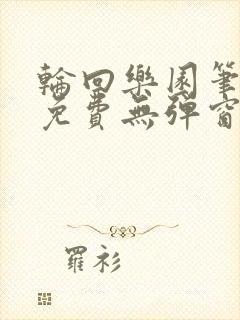 輪回樂園筆
免費無彈窗
羅衫